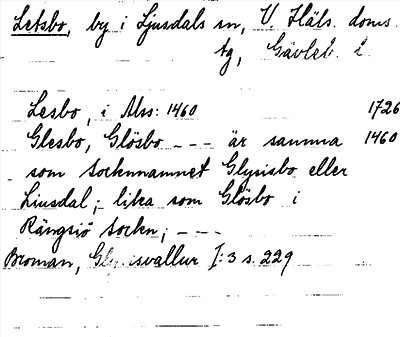 Letsbo, by i Ljusdals sn, V. Häls. doms.
tg, Gävleb. l.
Lesbo, i Mss: 1460 1726
Glesbo, Glösbo - - - är samma 1460
som socknnamnet Glysisbo eller
Liusdal; - lika som Glösbo i
Rängsiö Sockn; - - -
Broman, Glysisvallur I:3 s. 229